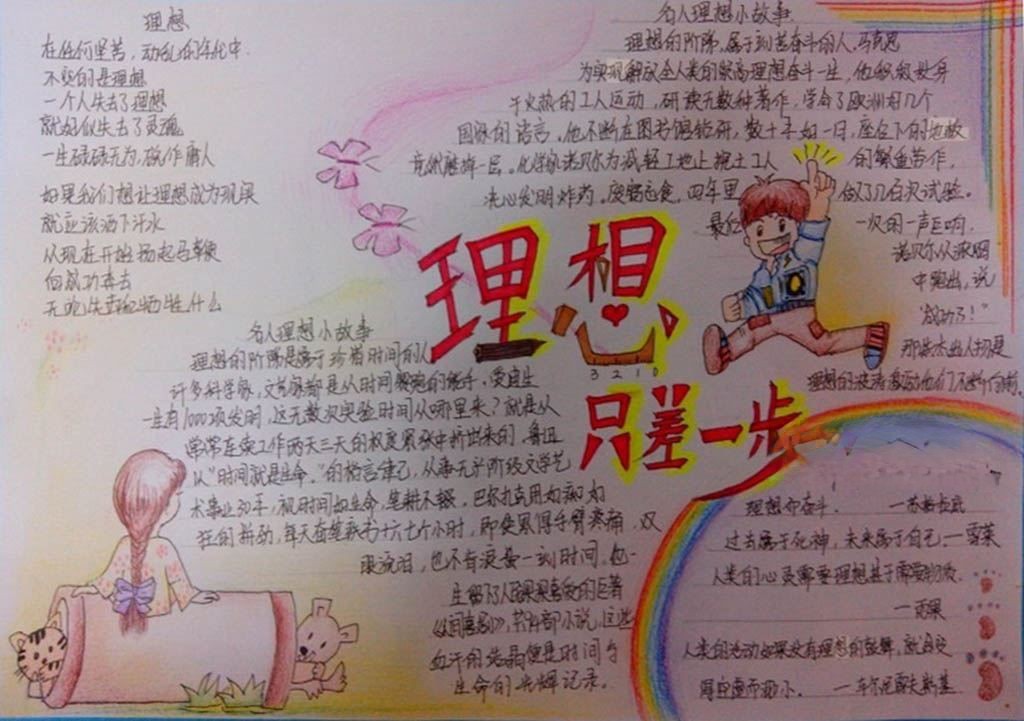 理想
在任何坚苦,动乱的年代中.
不变的是理想
一个人失去了理想
就好似失去了灵魂
一生碌碌无为,故作庸人
如果我们想让理想成为现实
就应该洒下汗水
从现在开始扬起马鞭
向成功奔去
无论失去和牺牲什么
名人理想小故事
理想的阶陟,属于刻苦奋斗的人.马克思
为实现解放全人类的崇高理想奋斗一生,他积极投身
于火热的工人运动,研读无数种著作,学会了欧洲好几个
国家的语言.他不断在图书馆钻研,数十年如一日,座位下的地板
竟然磨掉一层.化学家诺贝尔为减轻工地上挖土工人的繁重劳作,
决心发明炸药,废寝忘食,四年里做了几百次试验。
最后一次的一声巨响,
诺贝尔从浓烟
中跑出,说
"成功了!"
那些杰出人物是
理想的
理想
3 2 1 0
只差一步
名人理想小故事
理想的阶陟是属于珍惜时间的人
许多科学家,文学家都是从时间的能手.爱迪生
一生有1000项发明,这无数次实验时间从哪里来?就是从
常常连续工作两天三天的极度紧张中挤出来的.鲁迅
以"时间就是生命."的格言律己,从事无产阶级文学艺
术事业30年,视时间如生命,笔耕不辍.巴尔扎克用如痴如
狂的拼劲,每天奋笔疾书十六七个小时,即使累得手臂疼痛,双
眼流泪,也不肯浪费一刻时间。他一
生留下了人民深爱的巨著
《人间喜剧》,
血汗的结晶便是时间与
生命的光辉记录。
理想而奋斗. ——苏格拉底
过去属于死神,未来属于自己.——雪莱
人类的心灵需要理想甚于需要物质.
——雨果
人类的活动如果没有理想的鼓舞,就会变
得空虚而渺小. ——车尔尼雪夫斯基